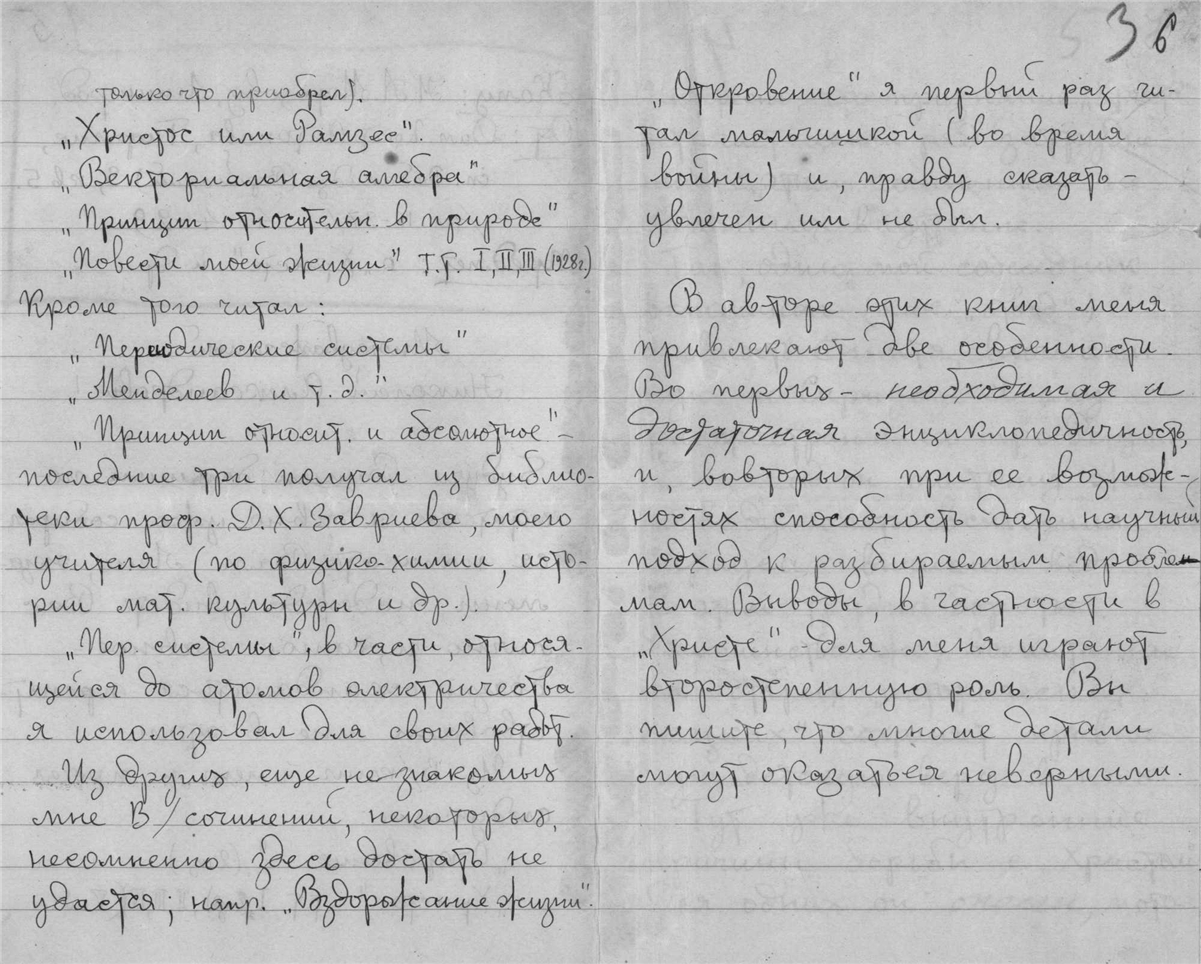 только что приобрел).
„Христос или Рамзес".
„Векториальная алгебра"
„Принцип относительн. в природе"
„Повести моей жизни" т.г. I, II, III (1928 г.)
Кроме того читал:
„Периодические системы"
„Менделеев и т. д."
„Принцип относит. и абсолютное" –
последние три получал из библио-
теки проф. Д. Х. Завриева, моего
учителя (по физико-химии, исто-
рии мат. культуры и др.).
„Пер. системы", в части, относя-
щейся до атомов электричества
я использовал для своих работ.
Из других, еще не знакомых
мне В/сочинений, некоторых,
несомненно здесь достать не
удастся; напр. „Вздорожание жизни".
36
„Откровение" я первый раз чи-
тал мальчишкой (во время
войны) и, правду сказать –
увлечен им не был.
В авторе этих книг меня
привлекают две особенности.
Во первых – необходимая и
достаточная энциклопедичность,
и, вовторых при ее возмож-
ностях способность дать научный
подход к разбираемым пробле
мам. Выводы, в частности в
„Христе" - для меня играют
второстепенную роль. Вы
пишите, что многие детали
могут оказаться неверными.